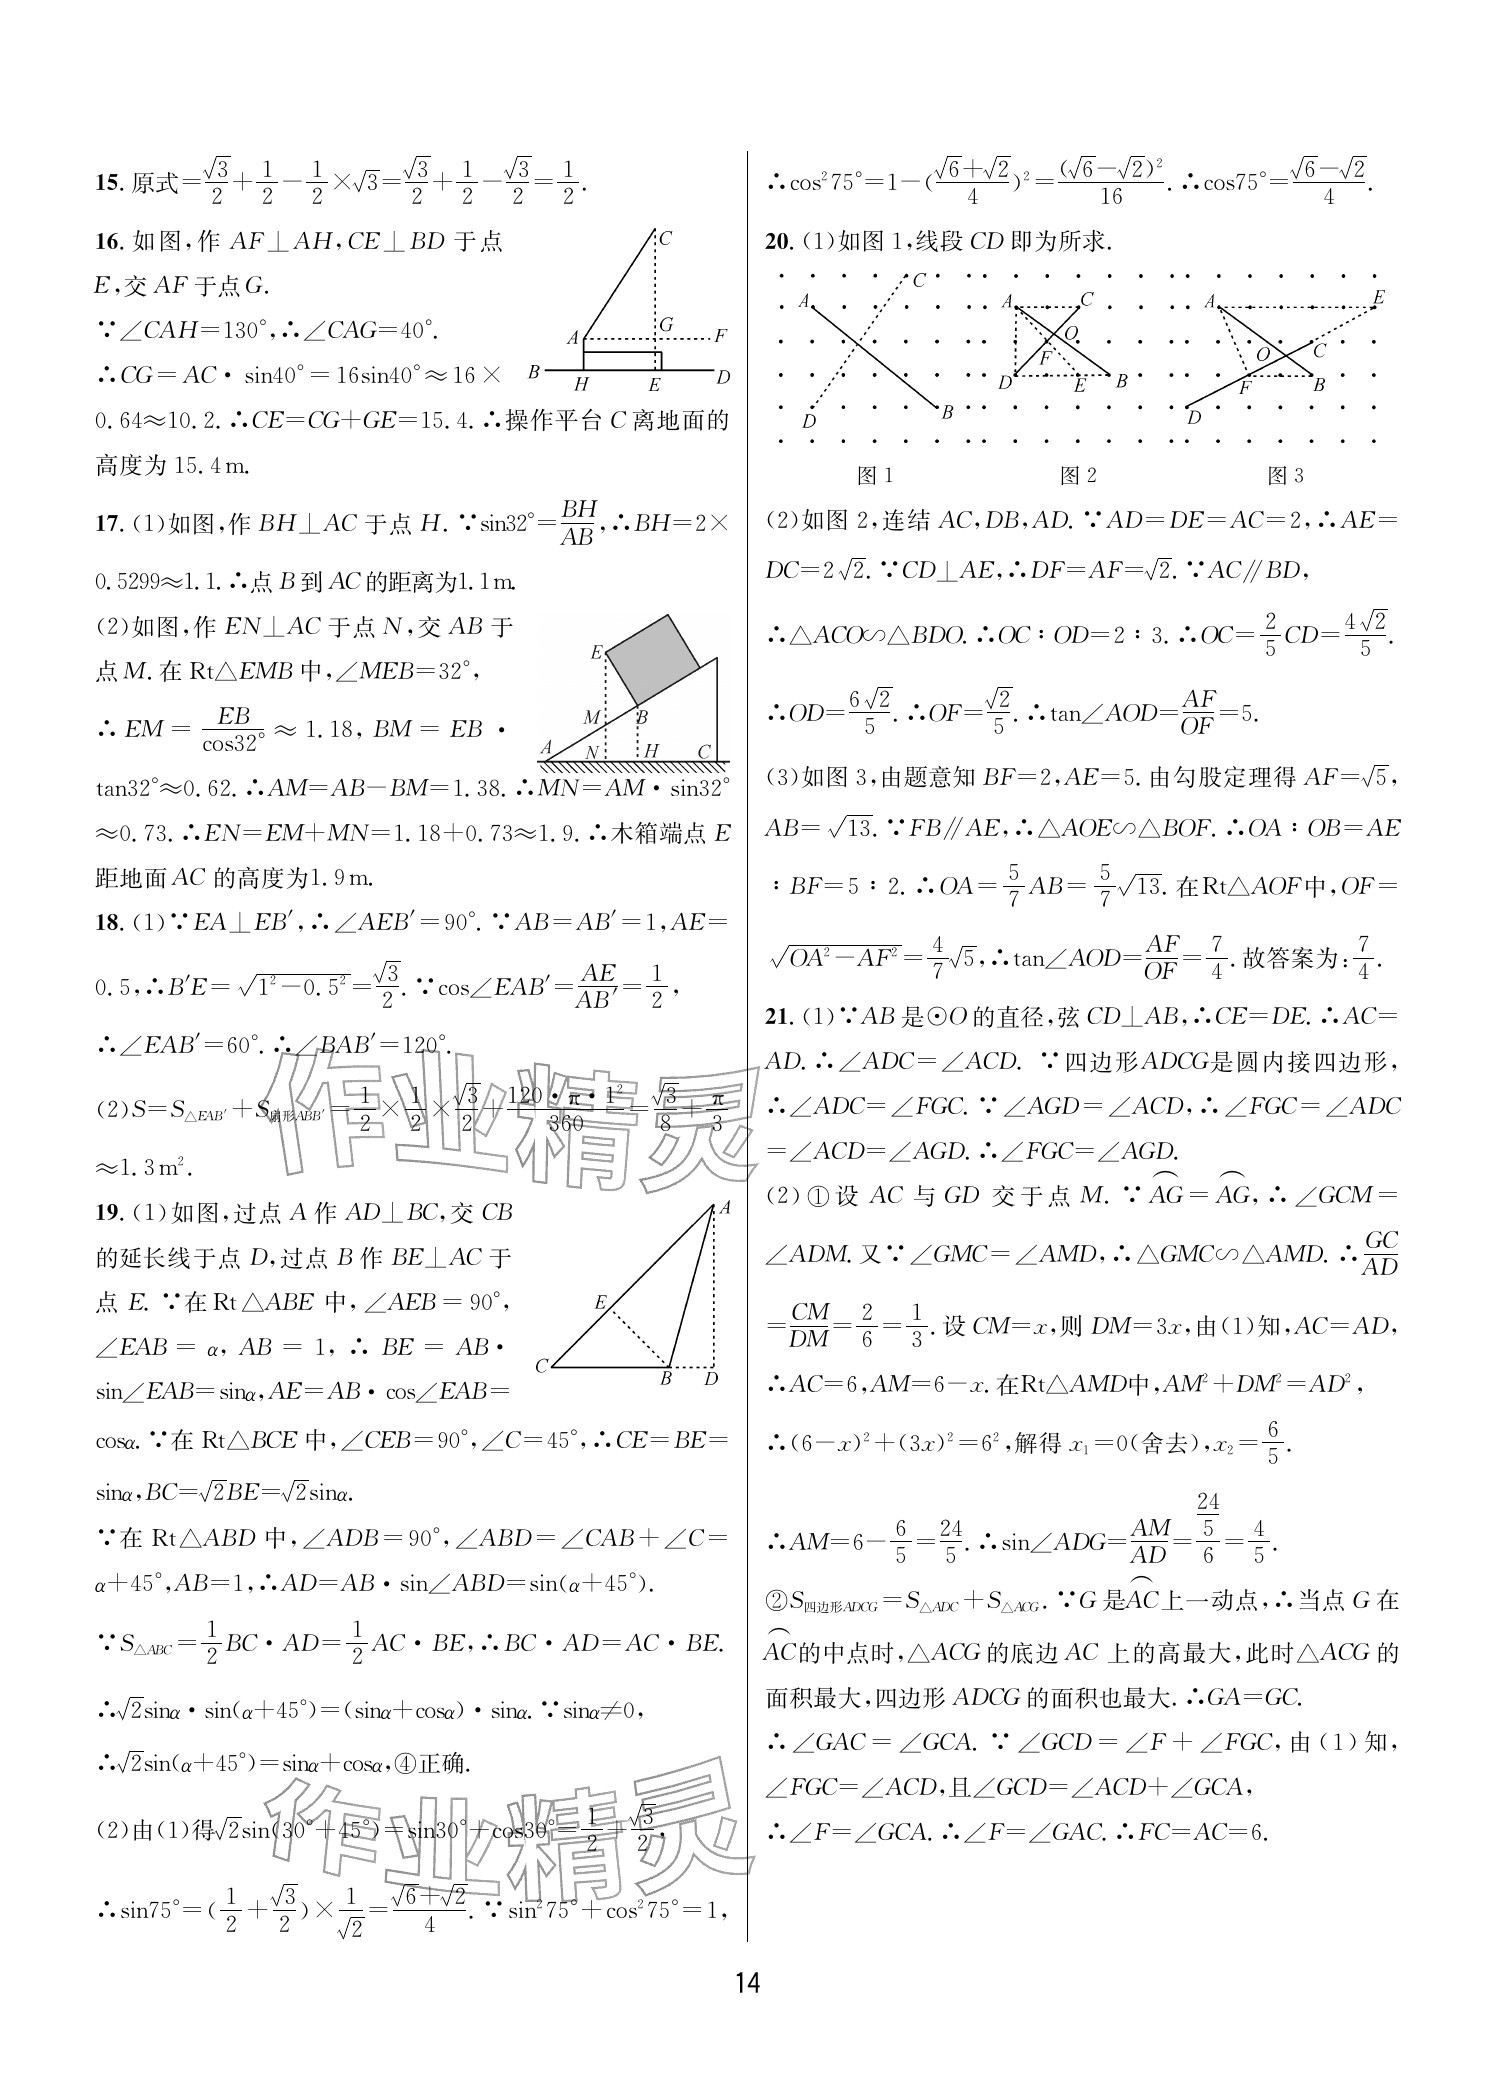 15. 原式=√3/2+1/2-1/2×√3=√3/2+1/2-√3/2=1/2.
16. 如图,作 AF⊥AH,CE⊥BD 于点
E,交 AF 于点G.
∵∠CAH=130°,∴∠CAG=40°.
∴CG=AC·sin40°=16sin40°≈16×
0.64≈10.2.∴CE=CG+GE=15.4.∴操作平台 C 离地面的
高度为 15.4m.
C
A
G
F
B
H
E
D
17. (1)如图,作 BH⊥AC 于点 H.∵sin32°=BH/AB,∴BH=2×
0.5299≈1.1.∴点 B 到 AC 的距离为1.1m.
(2)如图,作 EN⊥AC 于点 N,交 AB 于
点 M.在 Rt△EMB 中,∠MEB=32°,
∴EM=EB/cos32°≈1.18,BM=EB·
tan32°≈0.62.∴AM=AB-BM=1.38.∴MN=AM·sin32°
≈0.73.∴EN=EM+MN=1.18+0.73≈1.9.∴木箱端点 E
距地面 AC 的高度为1.9m.
E
M
B
A
N
H
C
18. (1)∵EA⊥EB′,∴∠AEB′=90°.∵AB=AB′=1,AE=
0.5,∴B′E=√(1²-0.5²)=√3/2.∵cos∠EAB′=AE/AB′=1/2,
∴∠EAB′=60°.∴∠BAB′=120°.
(2)S=S△EAB′+S扇形ABB′=1/2×1/2×√3/2+120·π·1²/360=√3/8+π/3
≈1.3m².
19. (1)如图,过点 A 作 AD⊥BC,交 CB
的延长线于点 D,过点 B 作 BE⊥AC 于
点 E.∵在Rt△ABE 中,∠AEB=90°,
∠EAB=α,AB=1,∴BE=AB·
sin∠EAB=sinα,AE=AB·cos∠EAB=
cosα.∵在 Rt△BCE 中,∠CEB=90°,∠C=45°,∴CE=BE=
sinα,BC=√2BE=√2sinα.
A
E
C
B
D
∵在 Rt△ABD 中,∠ADB=90°,∠ABD=∠CAB+∠C=
α+45°,AB=1,∴AD=AB·sin∠ABD=sin(α+45°).
∵S△ABC=1/2BC·AD=1/2AC·BE,∴BC·AD=AC·BE.
∴√2sinα·sin(α+45°)=(sinα+cosα)·sinα.∵sinα≠0,
∴√2sin(α+45°)=sinα+cosα,④正确.
(2)由(1)得√2sin(30°+45°)=sin30°+cos30°=1/2+√3/2,
∴sin75°=(1/2+√3/2)×1/√2=(√6+√2)/4.∵sin²75°+cos²75°=1,
∴cos²75°=1-((√6+√2)/4)²=(√6-√2)²/16.∴cos75°=(√6-√2)/4.
20. (1)如图1,线段 CD 即为所求.
A
C
D
B
图1
A
C
O
F
D
E
B
图2
A
E
O
C
F
B
D
图3
(2)如图 2,连结 AC,DB,AD.∵AD=DE=AC=2,∴AE=
DC=2√2.∵CD⊥AE,∴DF=AF=√2.∵AC∥BD,
∴△ACO∽△BDO.∴OC∶OD=2∶3.∴OC=2/5CD=4√2/5.
∴OD=6√2/5.∴OF=√2/5.∴tan∠AOD=AF/OF=5.
(3)如图 3,由题意知 BF=2,AE=5.由勾股定理得 AF=√5,
AB=√13.∵FB∥AE,∴△AOE∽△BOF.∴OA∶OB=AE
∶BF=5∶2.∴OA=5/7AB=5/7√13.在Rt△AOF中,OF=
√(OA²-AF²)=4/7√5,∴tan∠AOD=AF/OF=7/4.故答案为:7/4.
21. (1)∵AB 是⊙O 的直径,弦 CD⊥AB,∴CE=DE.∴AC=
AD.∴∠ADC=∠ACD. ∵四边形ADCG是圆内接四边形,
∴∠ADC=∠FGC.∵∠AGD=∠ACD,∴∠FGC=∠ADC
=∠ACD=∠AGD.∴∠FGC=∠AGD.
(2)①设 AC 与 GD 交于点 M.∵⌒AG=⌒AG,∴∠GCM=
∠ADM.又∵∠GMC=∠AMD,∴△GMC∽△AMD.∴GC/AD
=CM/DM=2/6=1/3.设 CM=x,则 DM=3x,由(1)知,AC=AD,
∴AC=6,AM=6-x.在Rt△AMD中,AM²+DM²=AD²,
∴(6-x)²+(3x)²=6²,解得 x₁=0(舍去),x₂=6/5.
∴AM=6-6/5=24/5.∴sin∠ADG=AM/AD=(24/5)/6=4/5.
②S四边形ADCG=S△ADC+S△ACG.∵G 是⌒AC上一动点,∴当点 G 在
⌒AC的中点时,△ACG 的底边 AC 上的高最大,此时△ACG 的
面积最大,四边形 ADCG 的面积也最大.∴GA=GC.
∴∠GAC=∠GCA.∵∠GCD=∠F+∠FGC,由(1)知,
∠FGC=∠ACD,且∠GCD=∠ACD+∠GCA,
∴∠F=∠GCA.∴∠F=∠GAC.∴FC=AC=6.
作业精灵
作业精灵
14